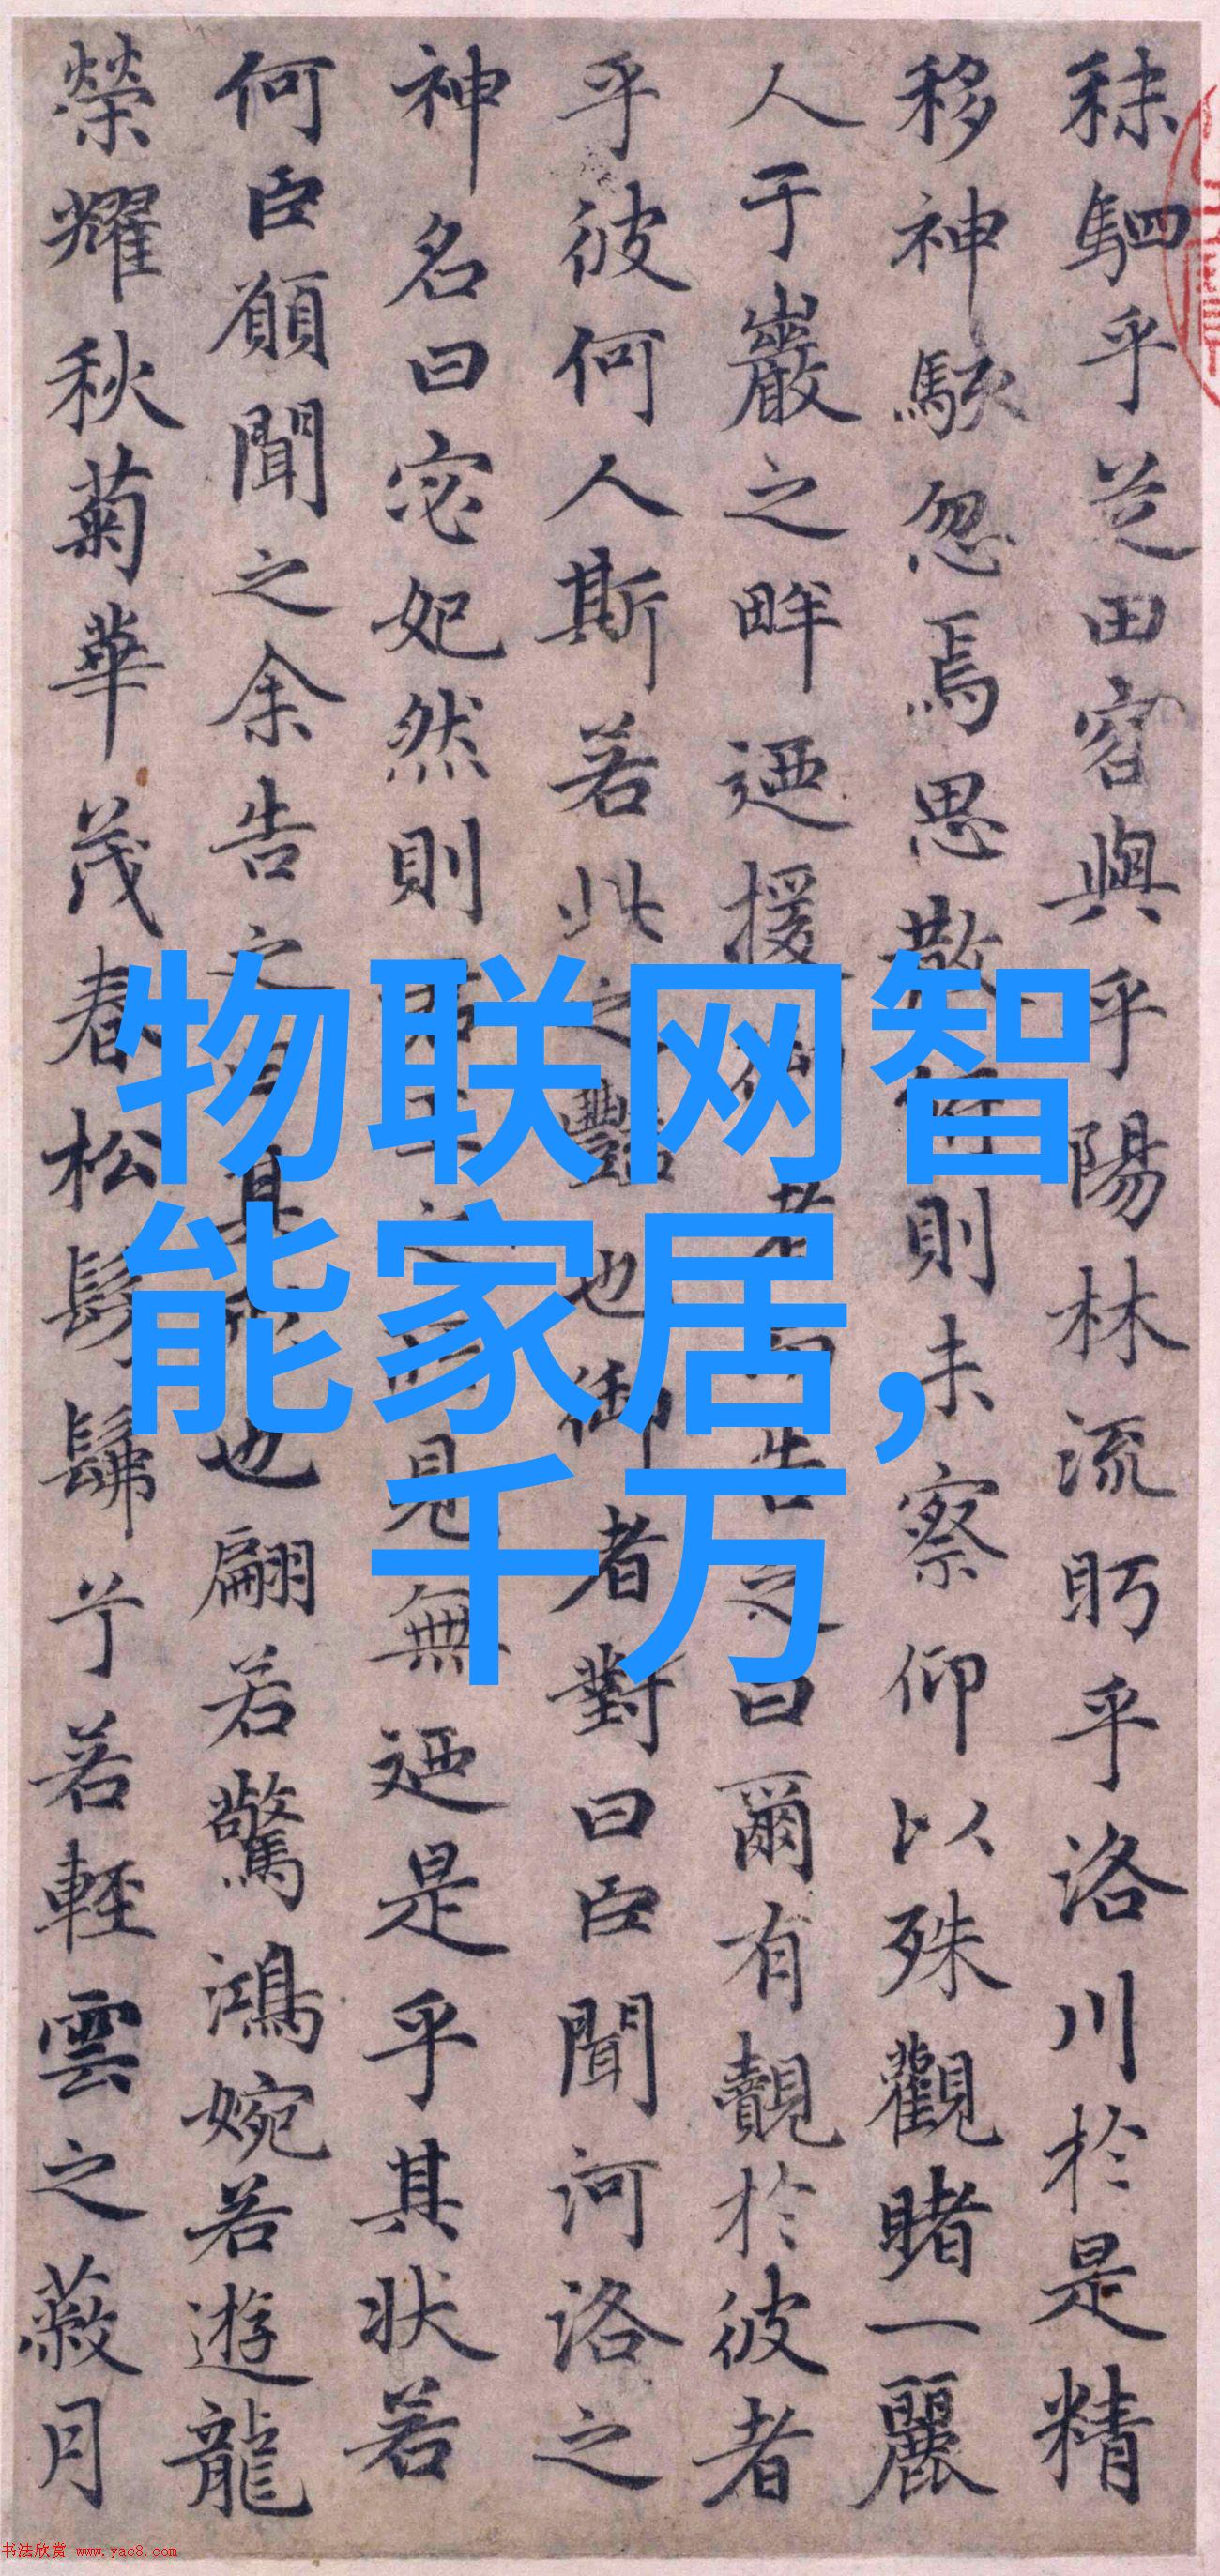 秣駟乎芝田容與乎陽林流眄乎洛川於是精
移神駭忽焉思散俯則未察仰以殊觀睹一麗
人于巖之畔迺援御者而告之曰爾有覿於彼者
乎彼何人斯若此之豔也御者對曰臣聞河洛之
神名曰宓妃然則君王之所見無迺是乎其狀若
何臣願聞之余告之曰其形也翩若驚鴻婉若遊龍
榮耀秋菊華茂春松髣髴兮若輕雲之蔽月
物联网智
能家居,
千万
书法欣赏 www.yac8.com